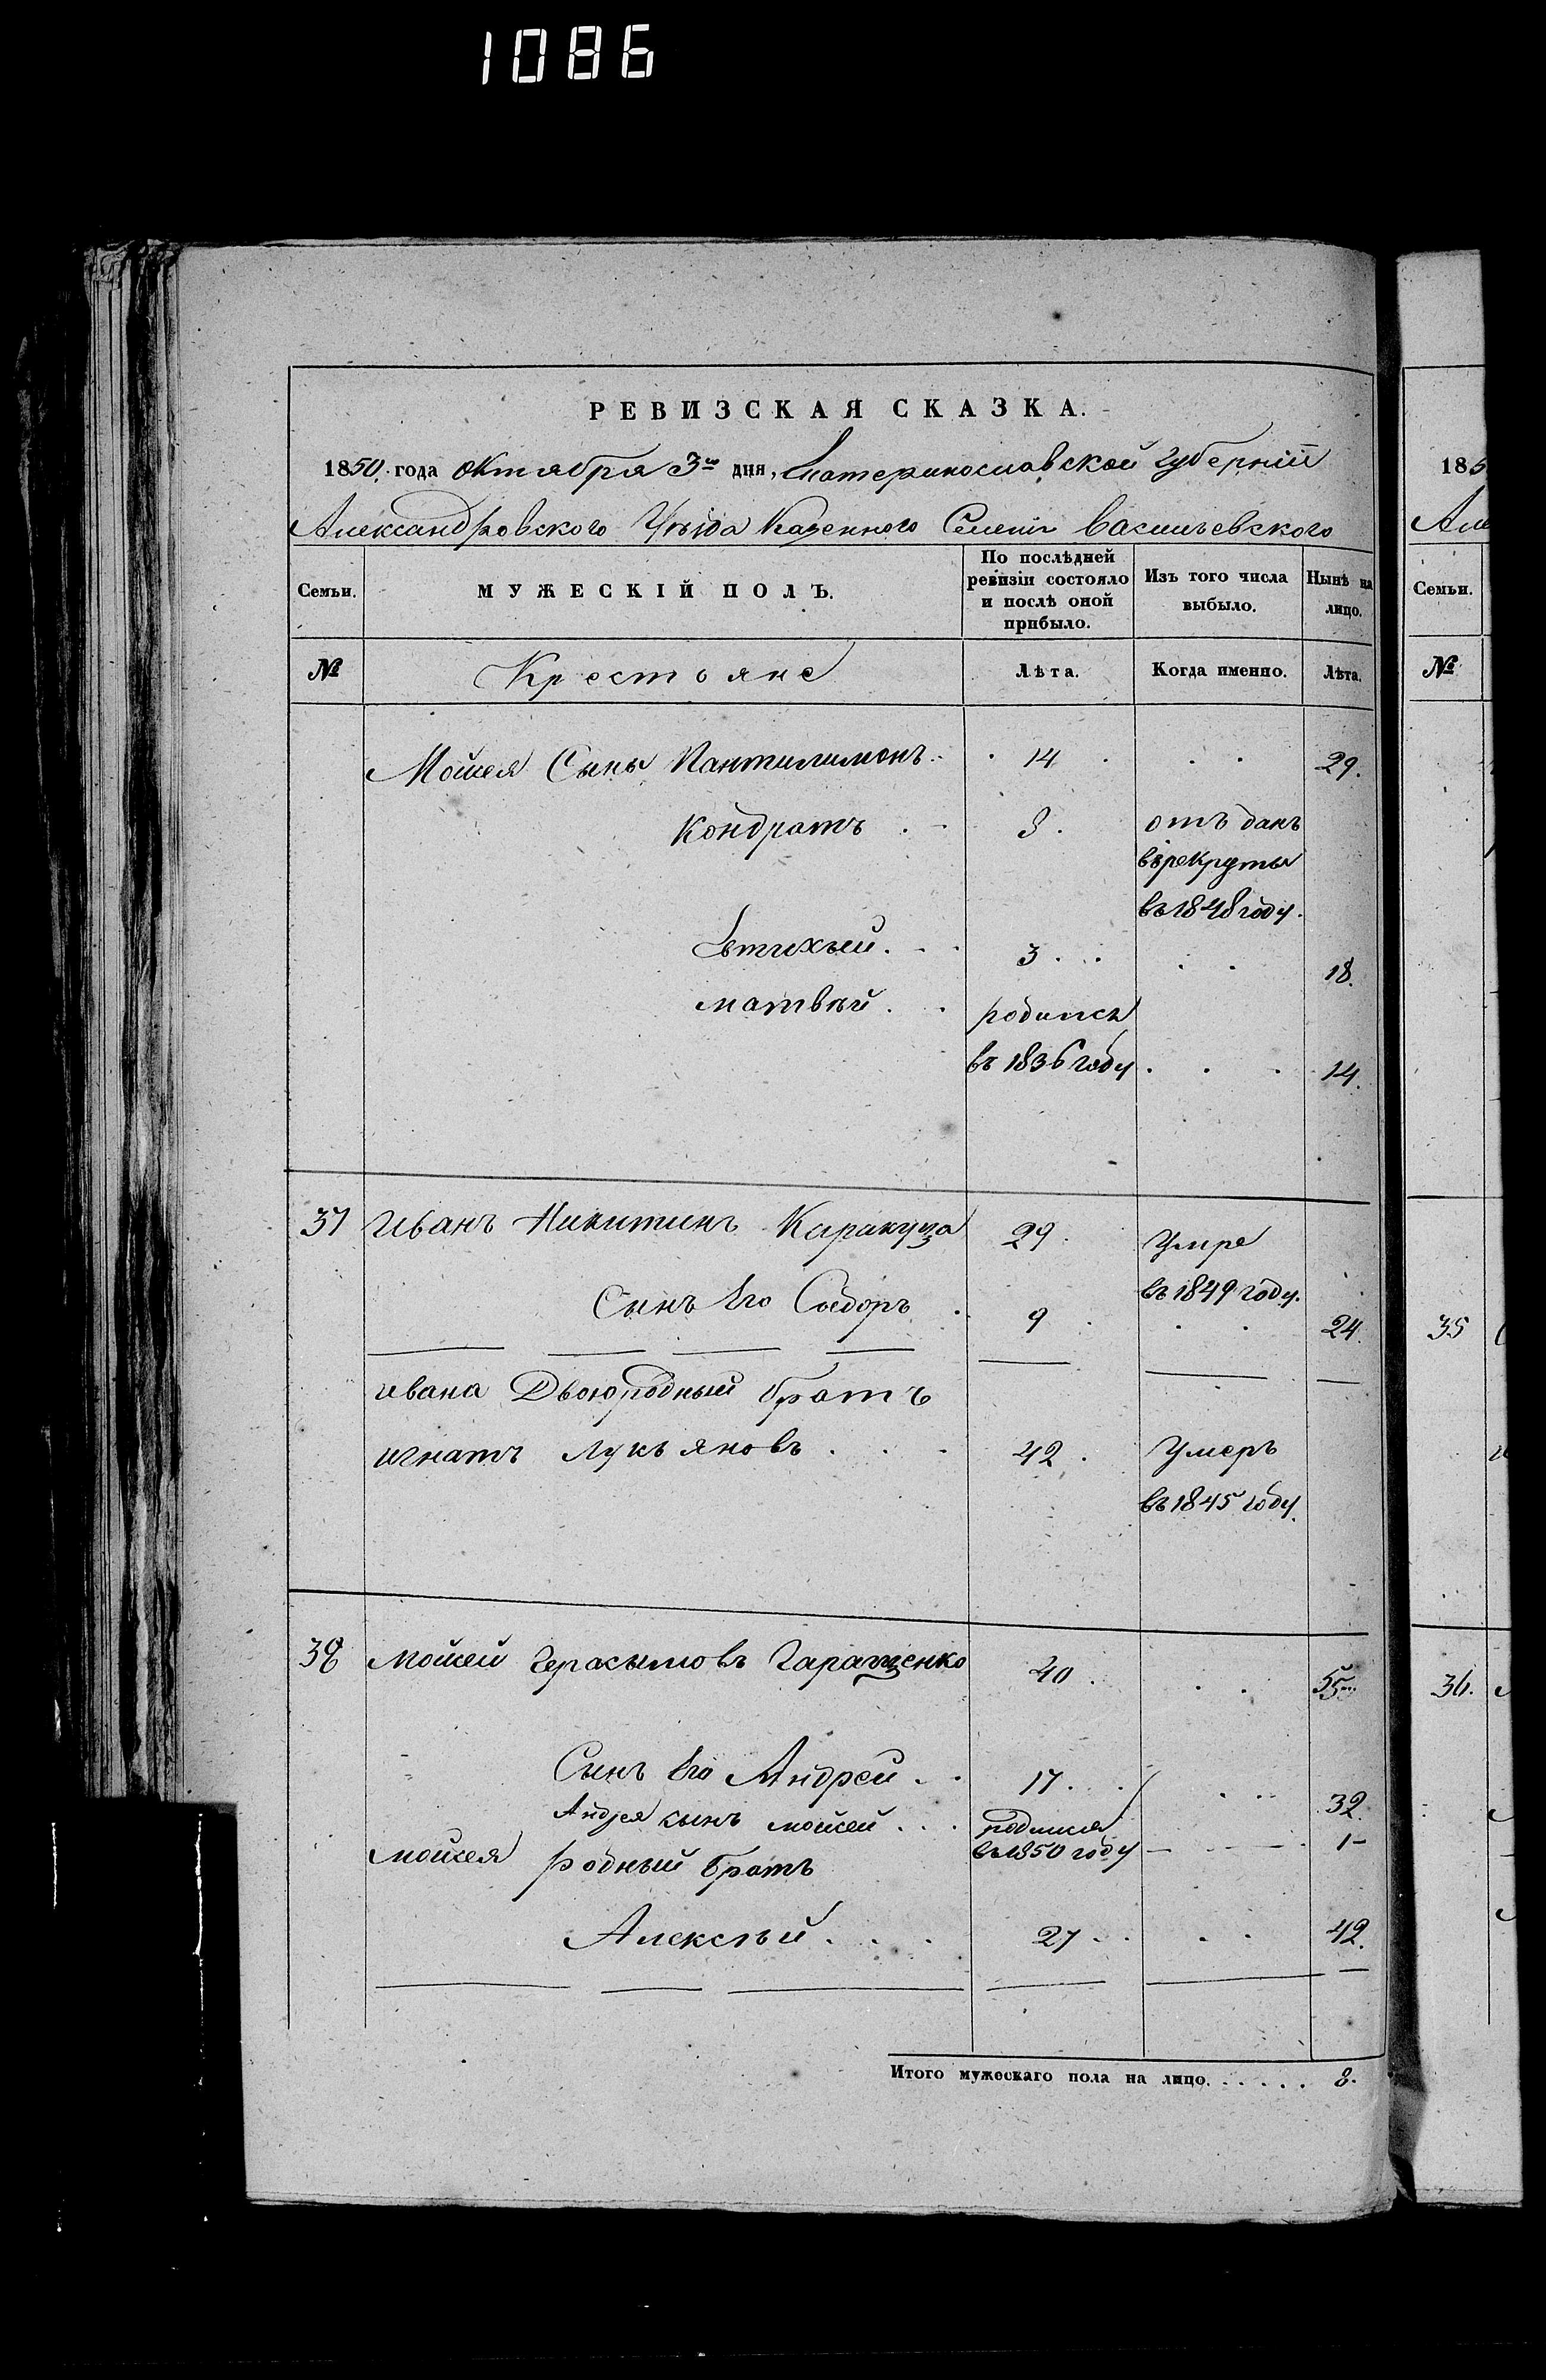 1086
РЕВИЗСКАЯ СКАЗКА.
1850. года октября 3го дня, Екатеринославской губернiи
Александровского Уѣзда Казенного Селенiя Васильевского
Семьи. МУЖЕСКIЙ ПОЛЪ. По послѣдней ревизiи состояло и послѣ оной прибыло. Изъ того числа выбыло. Нынѣ на лицо.
№ Крестьяне Лѣта. Когда именно. Лѣта.
Мойсея Сыны Пантилимонъ 14 29.
Кондратъ 8. отъ данъ
въ рекруты
въ 1848 году.
Евтихѣй 3 18.
матвѣй родился
въ 1836 году 14.
37 Иванъ Никитинъ Каракуза 29 Умре
въ 1849 году.
Сынъ Его Сыдоръ 9 24.
ивана Двоюродный братъ
игнатъ Лукьяновъ 42. Умеръ
въ 1845 году.
38 мойсей Герасымовъ Гаращенко 40. 55
Сынъ Его Андрей 17. 32.
Андрея сынъ мойсей родился
въ 1850 году 1
мойсея родный братъ
Алексѣй 27 42.
Итого мужескаго пола на лицо. 8.
185
Але
Семьи.
№
35
36.